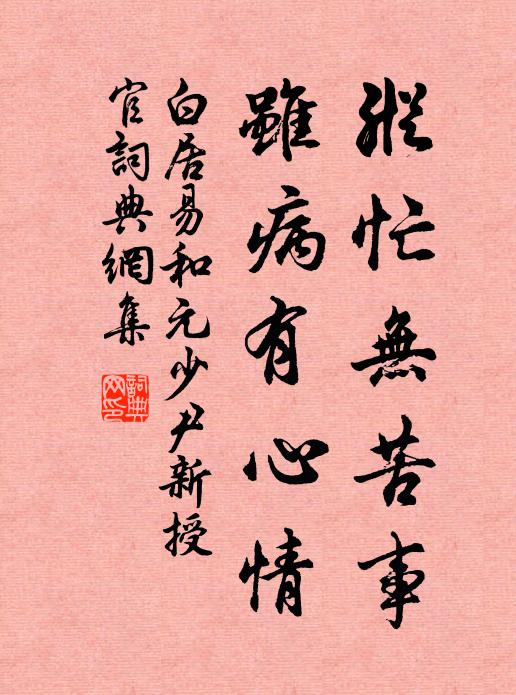 縱忙無苦事
雖病有心情
白居易和元少尹新授
官詞典網集
詞典網印